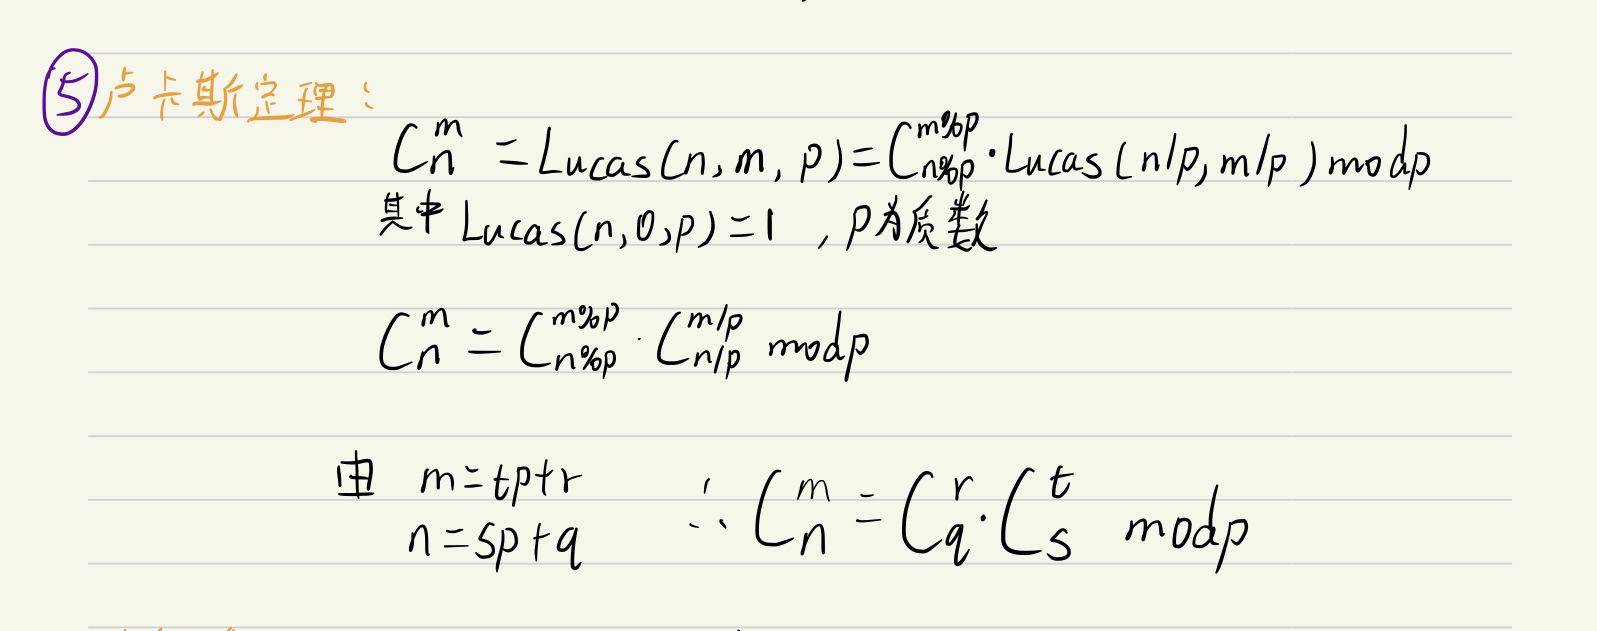 ⑤卢卡斯定理：
C_n^m = Lucas(n, m, p) = C_{n%p}^{m%p} · Lucas(n/p, m/p) mod p
其中 Lucas(n, 0, p) = 1 , p为质数
C_n^m = C_{n%p}^{m%p} · C_{n/p}^{m/p} mod p
由 m = tp + r
n = sp + q ∴ C_n^m = C_q^r · C_s^t mod p